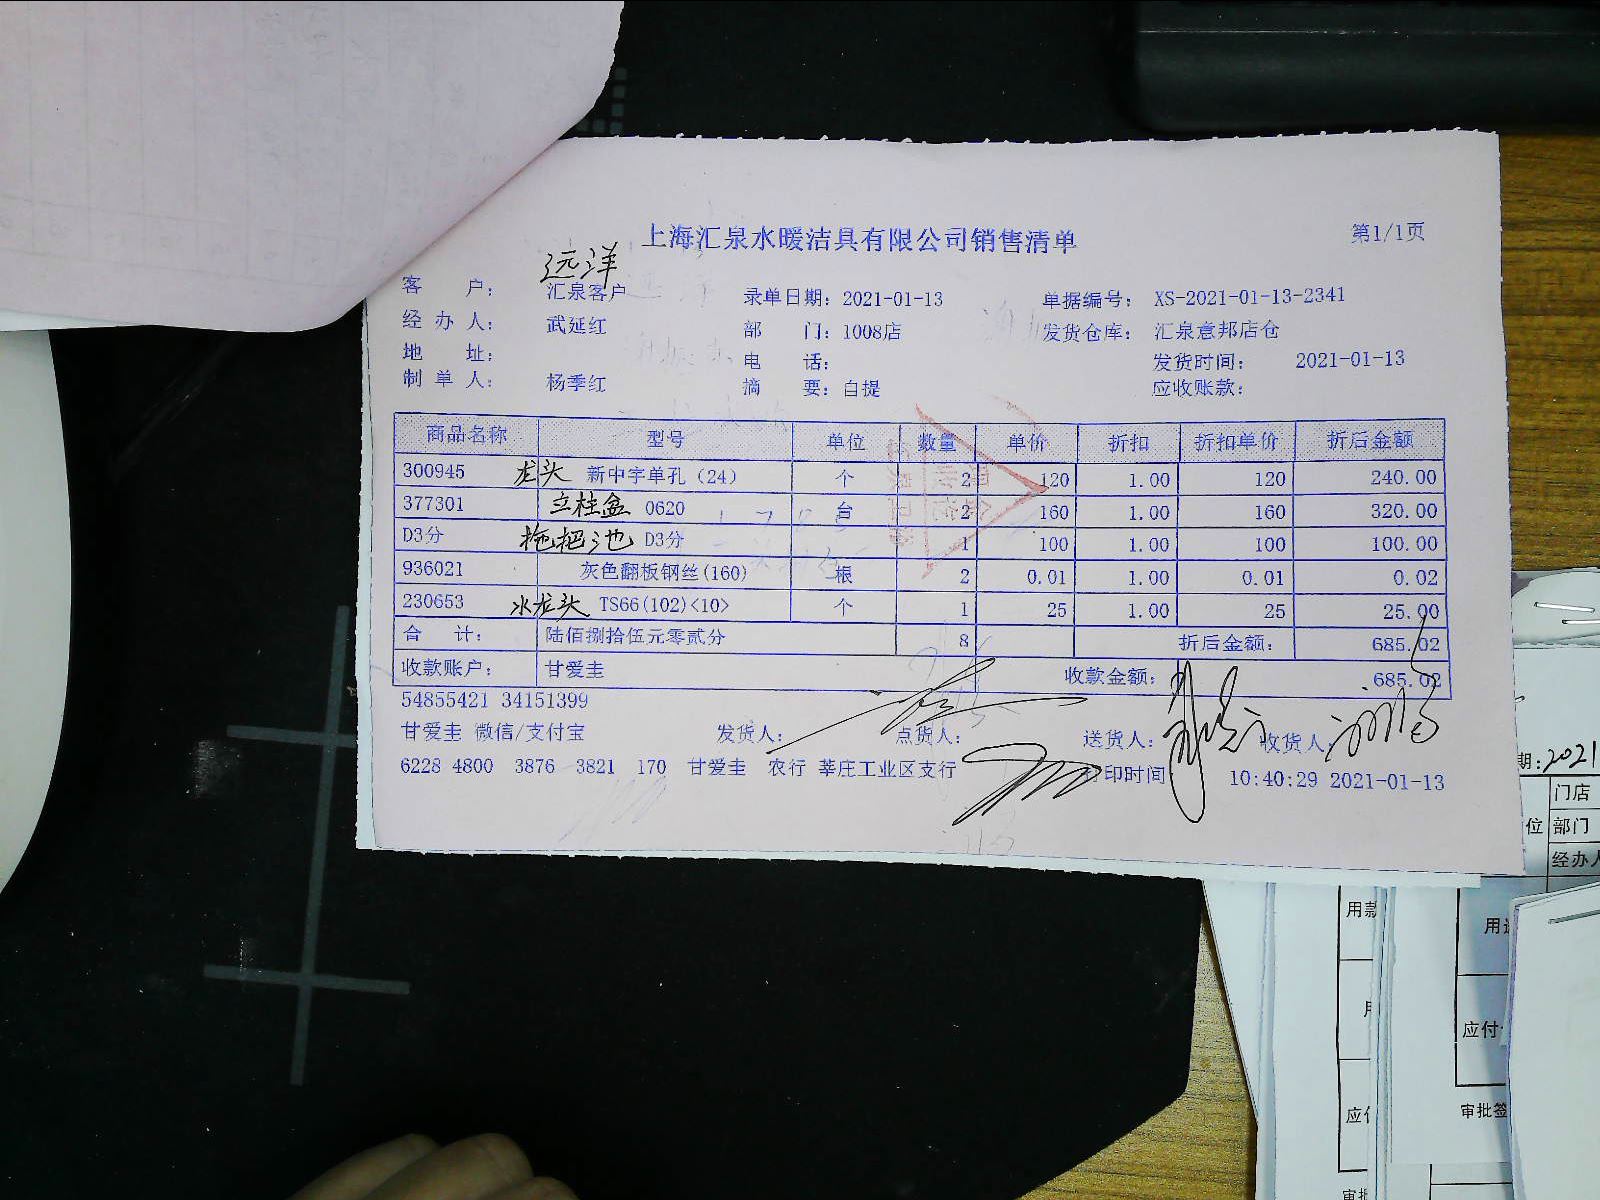 上海汇泉水暖洁具有限公司销售清单 第1/1页
远洋
客 户： 汇泉客户 录单日期：2021-01-13 单据编号： XS-2021-01-13-2341
经 办 人： 武延红 部 门：1008店 发货仓库： 汇泉意邦店仓
地 址： 电 话： 发货时间： 2021-01-13
制 单 人： 杨季红 摘 要：自提 应收账款：
商品名称 型号 单位 数量 单价 折扣 折扣单价 折后金额
300945 龙头 新中宇单孔（24） 个 2 120 1.00 120 240.00
377301 立柱盆 0620 台 2 160 1.00 160 320.00
D3分 拖把池 D3分 1 100 1.00 100 100.00
936021 灰色翻板钢丝(160) 根 2 0.01 1.00 0.01 0.02
230653 水龙头 TS66(102)<10> 个 1 25 1.00 25 25.00
合 计： 陆佰捌拾伍元零贰分 8 折后金额： 685.02
收款账户： 甘爱圭 收款金额： 685.02
54855421 34151399
甘爱圭 微信/支付宝 发货人： 点货人： 送货人： 收货人：
6228 4800 3876 3821 170 甘爱圭 农行 莘庄工业区支行 打印时间 10:40:29 2021-01-13
期：2021
门店
位 部门
经办人
用款
应付
审批签